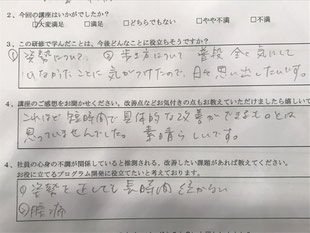 2、今回の講座はいかがでしたか？
☑大変満足 □満足 □どちらでもない □やや不満 □不満
3、この研修で学んだことは、今後どんなことに役立ちそうですか？
①姿勢について ②歩き方について 普段全く気にして
いなかったことに気がつけたので、日々思い出したいです。
4、講座のご感想をお聞かせください。改善点などお気付きの点もお教えいただけましたら嬉しいで
これほど短時間で具体的な改善ができるものとは
思っていませんでした。素晴らしいです。
4、社員の心身の不調が関係していると推測される、改善したい課題があれば教えてください。
お役に立てるプログラム開発に役立てたいと考えております。
①姿勢を正しても長時間続かない
②腰痛